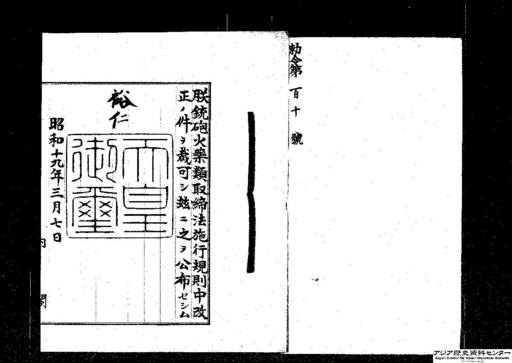 勅令第百十號
朕銃砲火藥類取締法施行規則中改
正ノ件ヲ裁可シ玆ニ之ヲ公布セシム
裕仁
天皇
御璽
昭和十九年三月七日
内閣
アジア歴史資料センター
Japan Center for Asian Historical Records